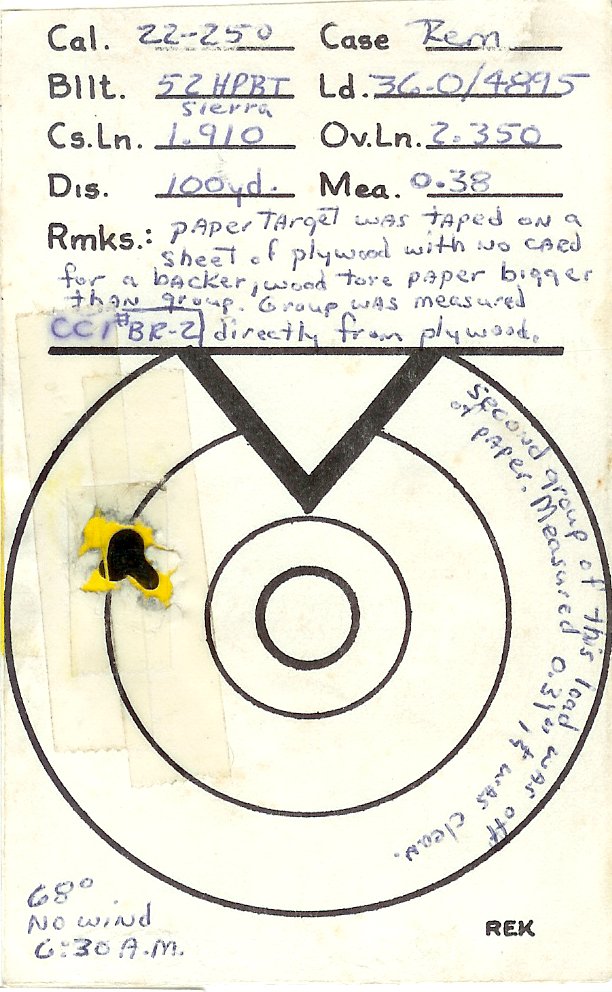 Cal. 22-250 Case Rem
Bllt. 52 HPBT Ld. 36.0/4895
Sierra
Cs.Ln. 1.910 Ov.Ln. 2.350
Dis. 100yd. Mea. 0.38
Rmks.: PAPER TArget was taped on a
sheet of plywood with no card
for a backer, wood tore paper bigger
than group. Group was measured
CCI #BR-2 directly from plywood.
Second group of this load was off
of paper. Measured 0.31" it was clean.
68°
No wind
6:30 A.M.
REK